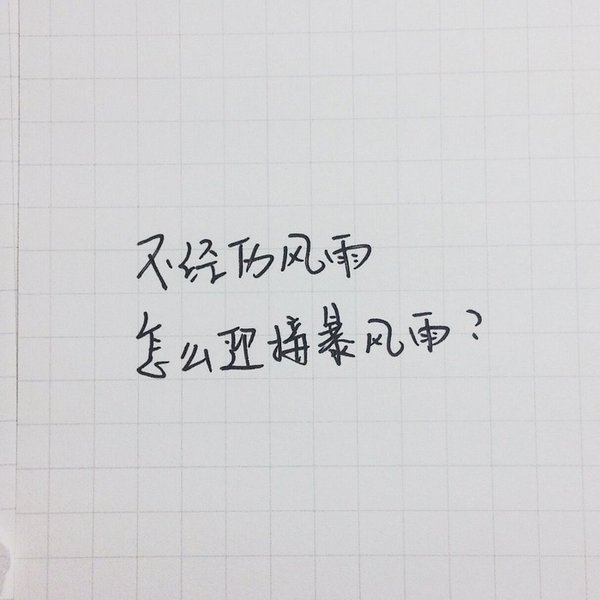 不经历风雨
怎么迎接暴风雨?